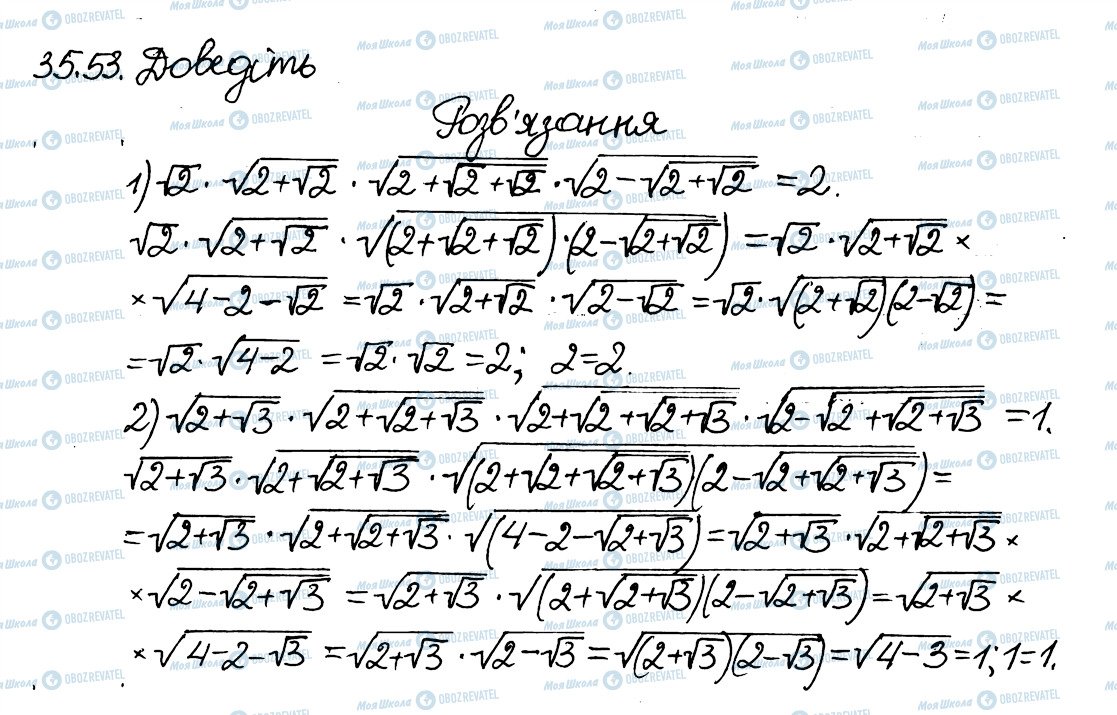 35.53. Доведіть
Розв'язання
1) √2 · √(2+√2) · √(2+√(2+√2)) · √(2-√(2+√2)) = 2.
√2 · √(2+√2) · √((2+√(2+√2))·(2-√(2+√2))) = √2 · √(2+√2) ×
× √(4-2-√2) = √2 · √(2+√2) · √(2-√2) = √2 · √((2+√2)(2-√2)) =
= √2 · √(4-2) = √2 · √2 = 2; 2=2.
2) √(2+√3) · √(2+√(2+√3)) · √(2+√(2+√(2+√3))) · √(2-√(2+√(2+√3))) = 1.
√(2+√3) · √(2+√(2+√3)) · √((2+√(2+√(2+√3)))(2-√(2+√(2+√3)))) =
= √(2+√3) · √(2+√(2+√3)) · √(4-2-√(2+√3)) = √(2+√3) · √(2+√(2+√3)) ×
× √(2-√(2+√3)) = √(2+√3) · √((2+√(2+√3))(2-√(2+√3))) = √(2+√3) ×
× √(4-2-√3) = √(2+√3) · √(2-√3) = √((2+√3)(2-√3)) = √(4-3) = 1; 1=1.
Моя Школа OBOZREVATEL